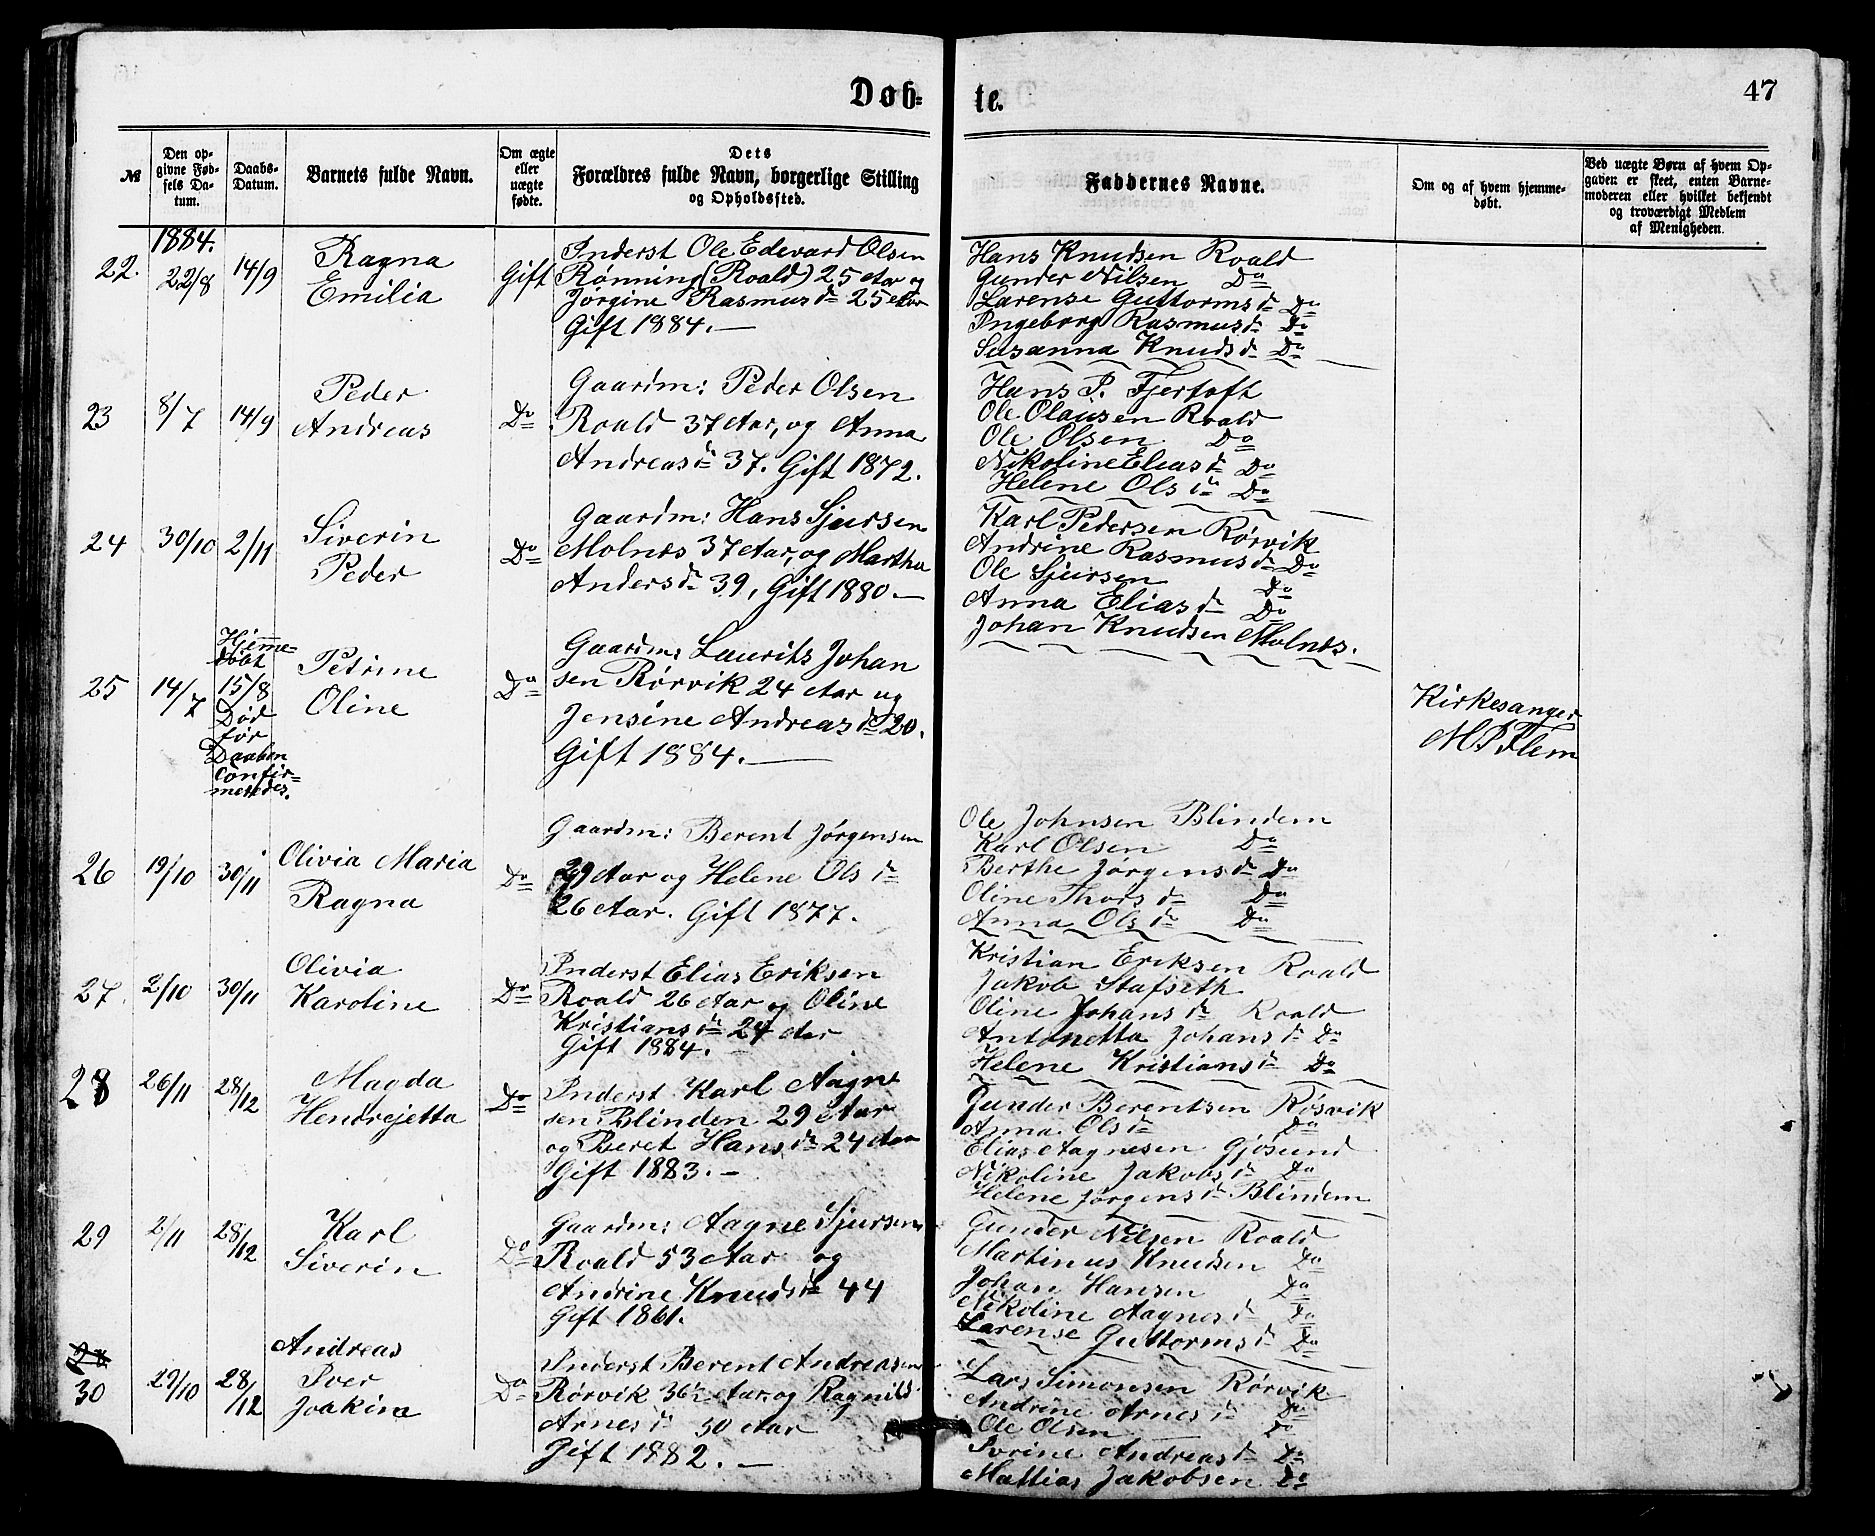 Døb-
te.
47
№
Den op-
givne Fød-
sels Da-
tum.
Daabs-
Datum.
Barnets fulde Navn.
Om ægte
eller
uægte
fødte.
Dets
Forældres fulde Navn, borgerlige Stilling
og Opholdssted.
Faddernes Navne.
Om og af hvem hjemme-
døbt.
Ved uægte Børn af hvem Op-
gaven er skeet, enten Barne-
moderen eller hvilket bekjendt
og troværdigt Medlem
af Menigheden.
1884.
22.
22/8
14/9
Ragna
Emilia
Gift
Inderst Ole Edevard Olsen
Rønning (Roald) 25 Aar og
Jørgine Rasmusdr 25 Aar
Gift 1884. —
Hans Knudsen Roald
Gunder Nilsen Do
Larense Guttormsdr Do
Ingeborg Rasmusdr Do
Susanna Knudsdr Do
23
8/7
14/9
Peder
Andreas
Do
Gaardm: Peder Olsen
Roald 37 Aar, og Anna
Andreasdr 37. Gift 1872.
Hans P. Fjertoft
Ole Olausen Roald
Ole Olsen Do
Nikoline Eliasdr Do
Helene Olsdr Do
24
30/10
2/11
Siverin
Peder
Do
Gaardm: Hans Sjursen
Molnes 37 Aar, og Martha
Andersdr 39, Gift 1880. —
Karl Pedersen Rørvik
Andrine Rasmusdr Do
Ole Sjursen Do
Anna Eliasdr Do
Johan Knudsen Molnes.
25
14/7
Hjemme-
døbt
15/8
Død
før
Daaben
Confir-
meredes.
Petrine
Oline
Do
Gaardm: Laurits Johan
sen Rørvik 24 Aar og
Jensine Andreasdr 20.
Gift 1884. —
Kirkesanger
M. P. Flem
26
19/10
30/11
Olivia Maria
Ragna
Do
Gaardm: Berent Jørgensen
29 Aar og Helene Olsdr
26 Aar. Gift 1877.
Ole Johnsen Blindem
Karl Olsen Do
Berthe Jørgensdr Do
Oline Thorsdr Do
Anna Olsdr Do
27.
2/10
30/11
Olivia
Karoline
Do
Inderst Elias Eriksen
Roald 26 Aar og Oline
Kristiansdr 24 Aar
Gift 1884. —
Kristian Eriksen Roald
Jakob Stafseth
Oline Johansdr Roald
Antonetta Johansdr Do
Helene Kristiansdr Do
28
26/11
28/12
Magda
Hendrejetta
Do
Inderst Karl Aagne
sen Blinden 29 Aar
og Beret Hansdr 24 Aar
Gift 1883. —
Gunder Berentsen Røsvik
Anna Olsdr Do
Elias Aagnesen Gjøsund
Nikoline Jakobsdr Do
Helene Jørgensdr Blindem
29
2/11
28/12
Karl
Siverin
Do
Gaardm: Aagne Sjursen
Roald 53 Aar og
Andrine Knudsdr 44
Gift 1861.
Gunder Nilsen Roald
Martinus Knudsen Do
Johan Hansen Do
Nikoline Aagnesdr Do
Larense Guttormsdr Do
28
30
29/10
28/12
Andreas
Iver
Joakim
Do
Inderst Berent Andreasen
Rørvik 36½ Aar og Ragnild
Arnesdr 30 Aar
Gift 1882. —
Lars Simonsen Rørvik
Andrine Arnesdr Do
Ole Olsen Do
Ivrine Andreasdr Do
Mattias Jakobsen Do